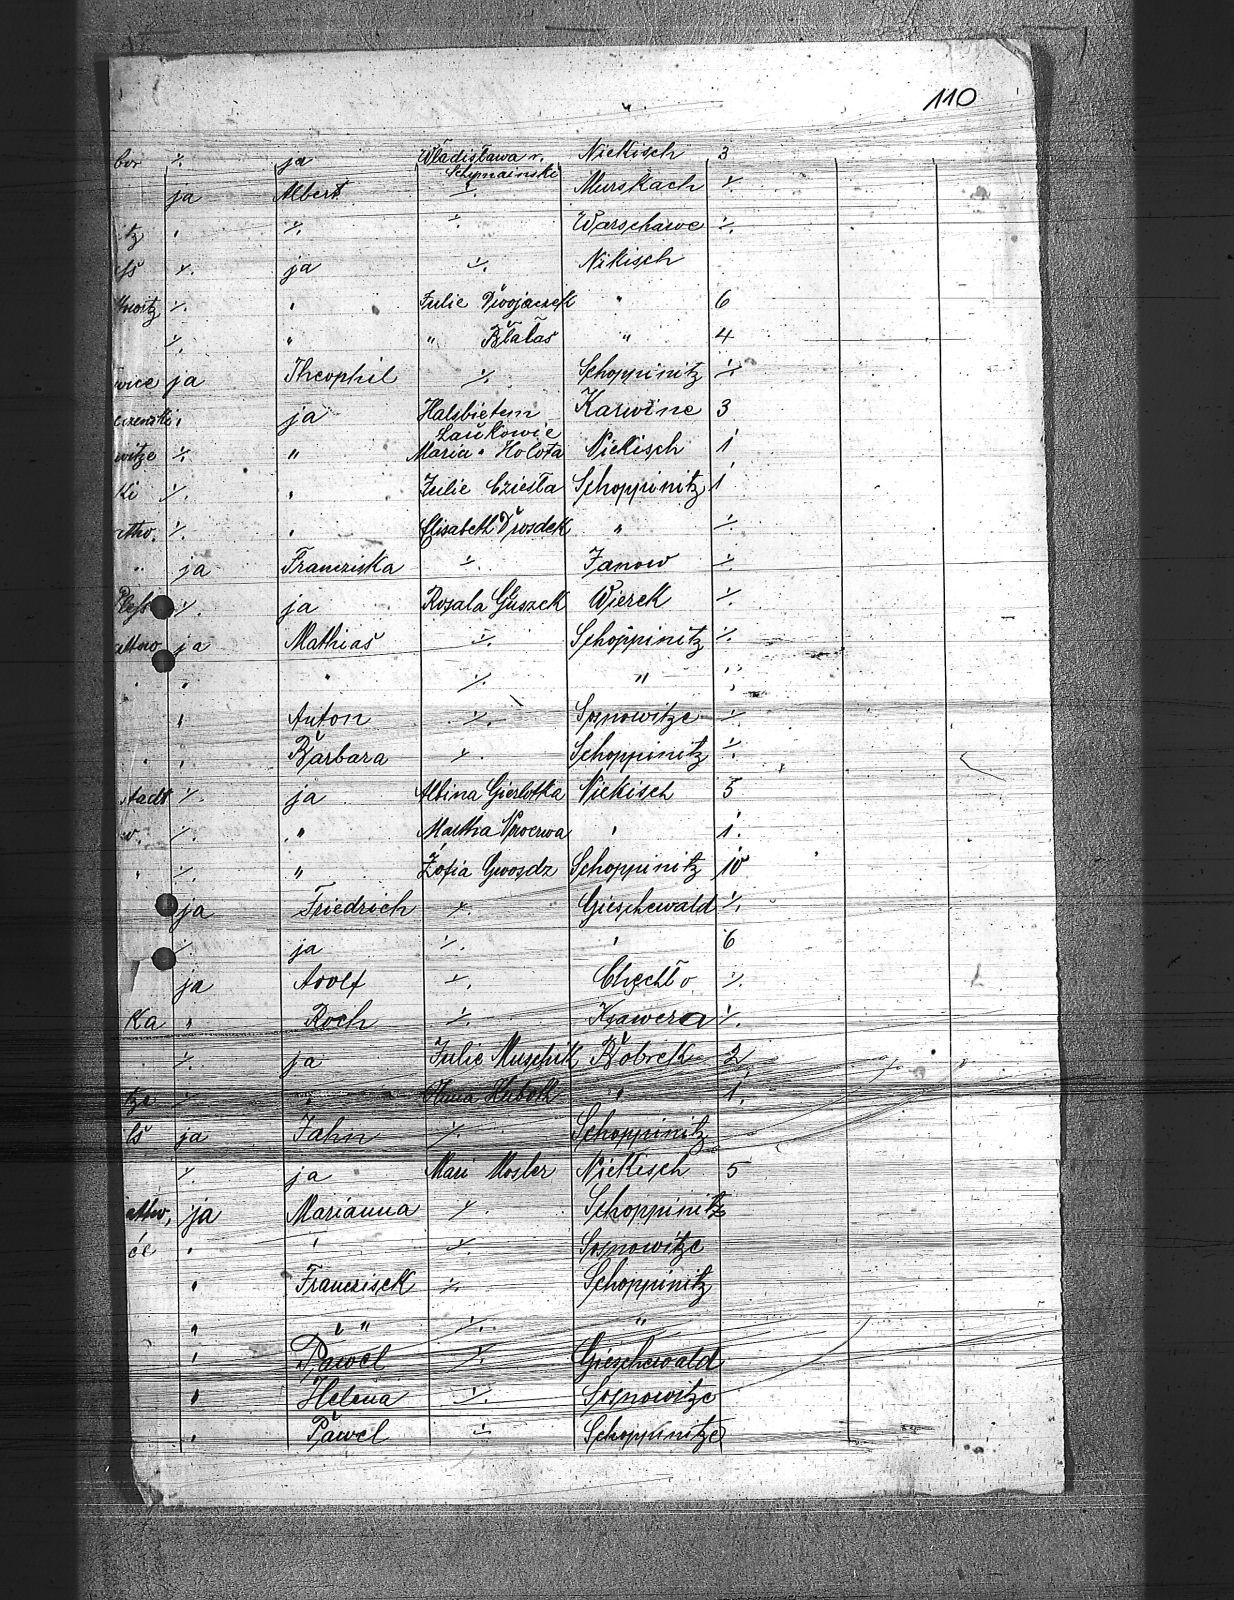 110
bor ⁒ ja Wladislawa v. Nickisch 3
Schymainski
ja Albert ⁒ Murskach ⁒
itz " ⁒ ⁒ Warschawe ⁒
ess ⁒ ja ⁒ Nikisch
⁒ " Julie Dwojaczek " 6
⁒ " " Btalas " 4
wice ja Theophil ⁒ Schoppinitz ⁒
czenski " ja Halsbietem Karwine 3
Laukowie
witze ⁒ " Maria Holota Nickisch 1
ki ⁒ " Julie Cziesla Schoppinitz 1
attho. ⁒ " Elisabeth Drosdek " ⁒
" ja Franziska ⁒ Janow ⁒
Pless ⁒ ja Rosala Guszek Wierek ⁒
attwo ja Mathias ⁒ Schoppinitz ⁒
" " " ⁒ " "
" Anton ⁒ Sosnowitze ⁒
" " Barbara ⁒ Schoppinitz ⁒
stadt ⁒ ja Albina Gierlotka Nickisch 5
w. ⁒ " Martha " 1.
" ⁒ " Zofia Gwosdz Schoppinitz 10
ja Friedrich ⁒ Gieschewald ⁒
⁒ ja ⁒ " 6
ja Adolf ⁒ Chechlo ⁒
ka " Roch ⁒ Ksawera ⁒
⁒ ja Julie Muschik Bobrek 2
tze ⁒ " Hubek " 1.
ls ja Jahn ⁒ Schoppinitz
⁒ ja Mari Mosler Nickisch 5
attw, ja Marianna ⁒ Schoppinitz
ce " " ⁒ Sosnowitze
" Franzisek ⁒ Schoppinitz
" " " ⁒ "
" Pawel ⁒ Gieschewald
" Helena ⁒ Sosnowitze
" Pawel ⁒ Schoppinitze